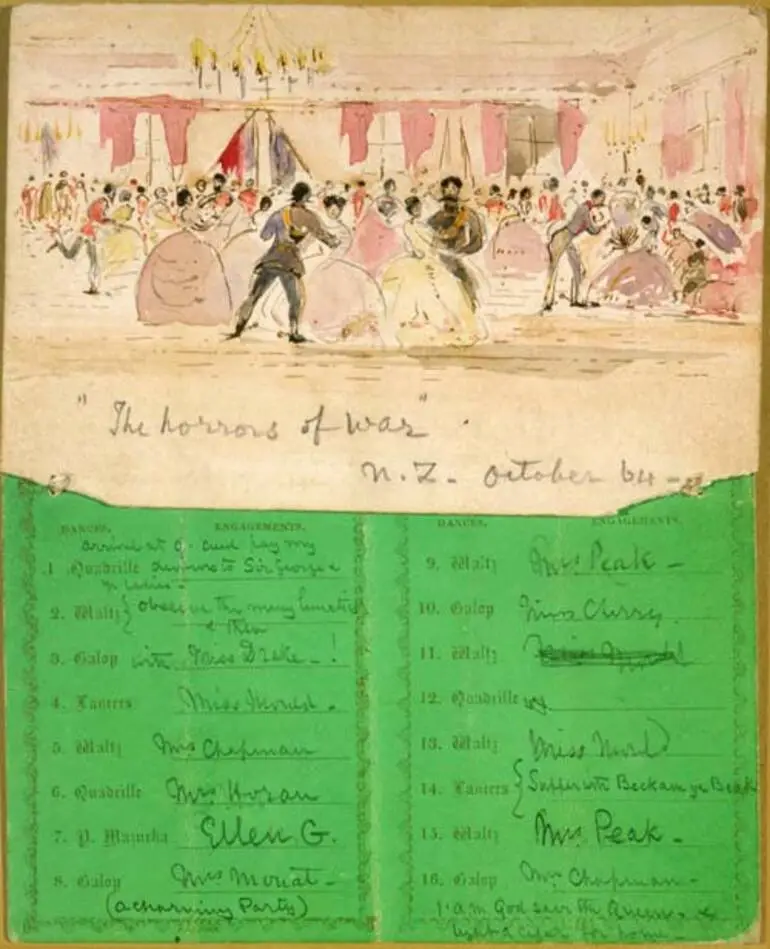 "The horrors of war".
N.Z. October 64 -
DANCES. ENGAGEMENTS.
arrival at 9. and pay my
1 Quadrille devoirs to Sir George &
ye ladies -
2. Waltz { observe the many lunatics
& then
3. Galop with Miss Drake - !
4. Lancers Miss
5. Waltz Mrs Chapman
6. Quadrille Mrs Horan
7. P. Mazurka Ellen G.
8. Galop Mrs -
(a charming Party)
DANCES. ENGAGEMENTS.
9. Waltz Mrs Peak -
10. Galop Miss Cherry.
11. Waltz
12. Quadrille
13. Waltz Miss
14. Lancers { Supper with
15. Waltz Mrs Peak -
16. Galop Mrs Chapman -
1 a.m God save the Queen - &
light a cigar for home -